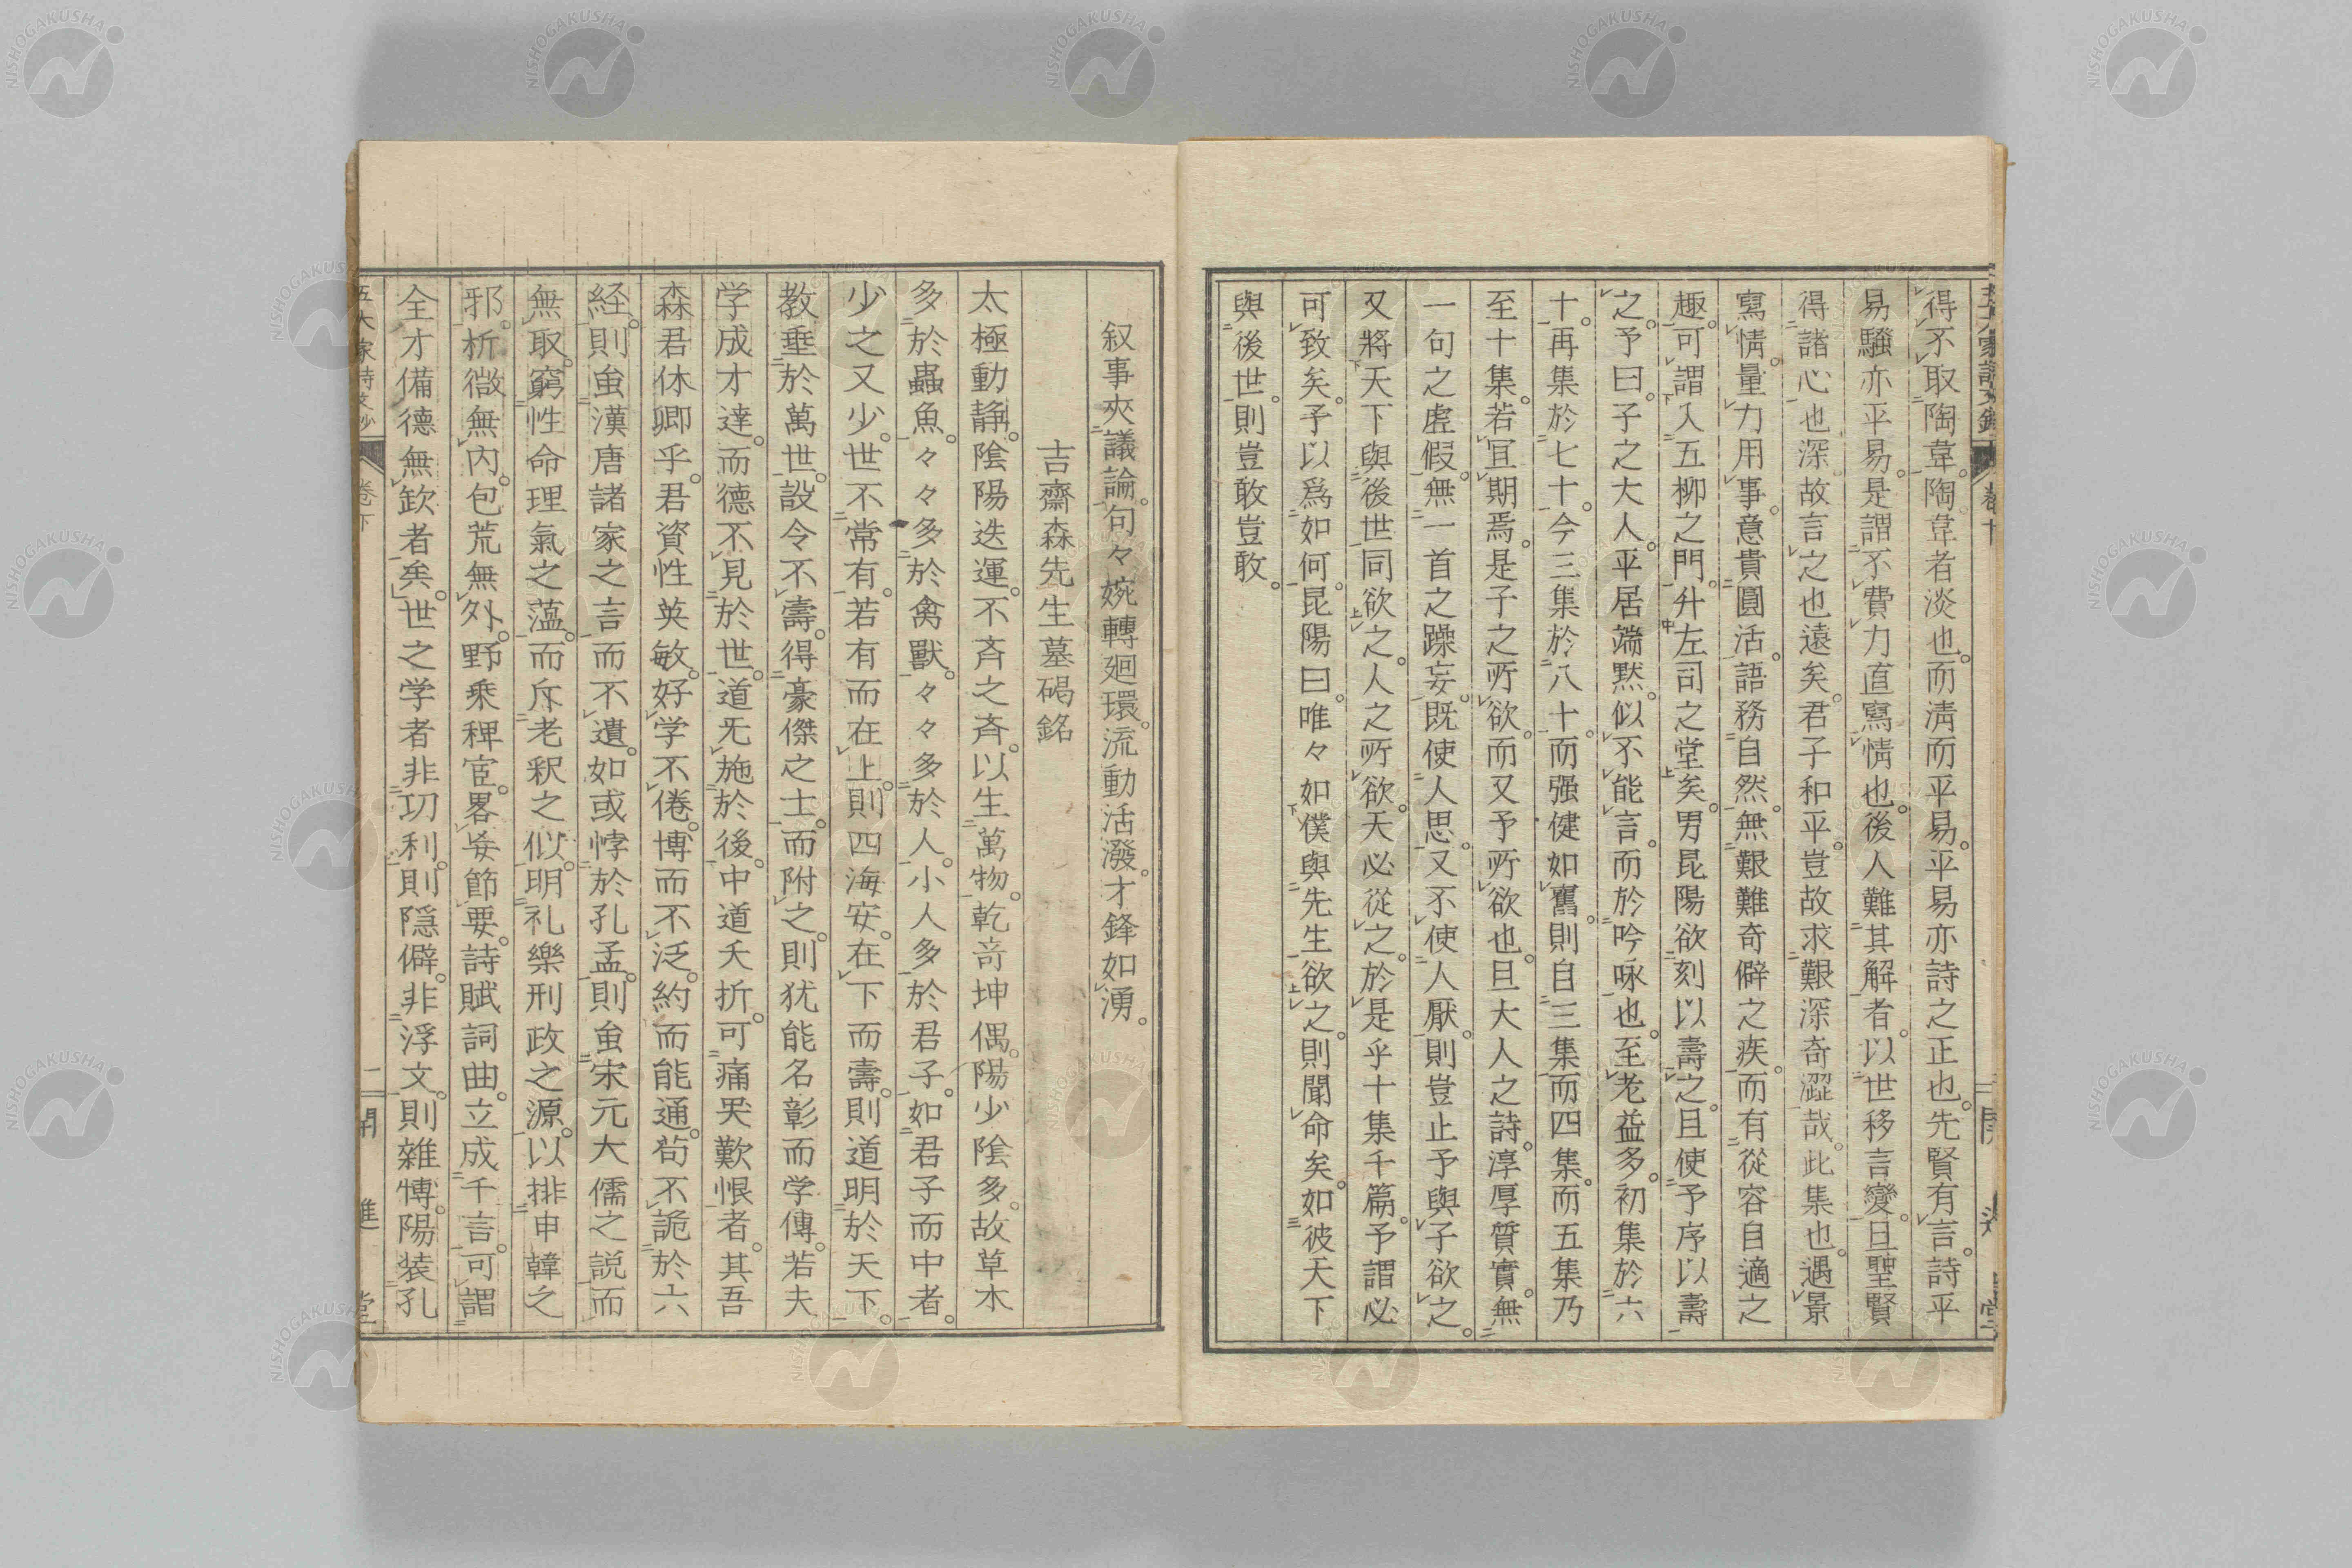 得不取陶韋。陶韋者淡也。而清而平易。平易亦詩之正也。先賢有言。詩平
易騷亦平易。是謂不費力直寫情也。後人難其解者。以世移言變。且聖賢
得諸心也深。故言之也遠矣。君子和平。豈故求艱深奇澀哉。此集也。遇景
寫情。量力用事。意貴圓活。語務自然。無艱難奇僻之疾。而有從容自適之
趣。可謂入五柳之門。升左司之堂矣。男昆陽欲刻以壽之。且使予序以壽
之。予曰。子之大人。平居端默。似不能言。而於吟咏也。至老益多。初集於六
十。再集於七十。今三集於八十。而强健如舊。則自三集而四集。而五集乃
至十集。若宜期焉。是子之所欲。而又予所欲也。且大人之詩。淳厚質實。無
一句之虛假。無一首之躁妄。既使人思。又不使人厭。則豈止予與子欲之。
又將天下與後世同欲之。人之所欲。天必從之。於是乎十集千篇。予謂必
可致矣。子以爲如何。昆陽曰。唯々如僕與先生欲之。則聞命矣。如彼天下
與後世。則豈敢豈敢。
叙事夾議論。句々婉轉廻環。流動活潑。才鋒如湧。
吉齋森先生墓碣銘
太極動静。陰陽迭運。不斉之斉。以生萬物。乾竒坤偶。陽少陰多。故草木
多於蟲魚。々々多於禽獸。々々多於人。小人多於君子。如君子而中者。
少之又少。世不常有。若有而在上。則四海安。在下而壽。則道明於天下。
教垂於萬世。設令不壽。得豪傑之士。而附之。則犹能名彰而学傳。若夫
学成才達。而德不見於世。道无施於後。中道夭折。可痛哭歎恨者。其吾
森君休卿乎。君資性英敏。好学不倦。博而不泛。約而能通。苟不詭於六
経。則虽漢唐諸家之言而不遺。如或悖於孔孟。則虽宋元大儒之説而
無取。窮性命理氣之薀。而斥老釈之似。明礼樂刑政之源。以排申韓之
邪。析微無内。包荒無外。野乘稗官。畧妄節要。詩賦詞曲。立成千言。可謂
全才備德無欽者矣。世之学者非功利。則隠僻。非浮文。則雜愽。陽装孔
五大家詩文鈔 卷下 二 開進堂